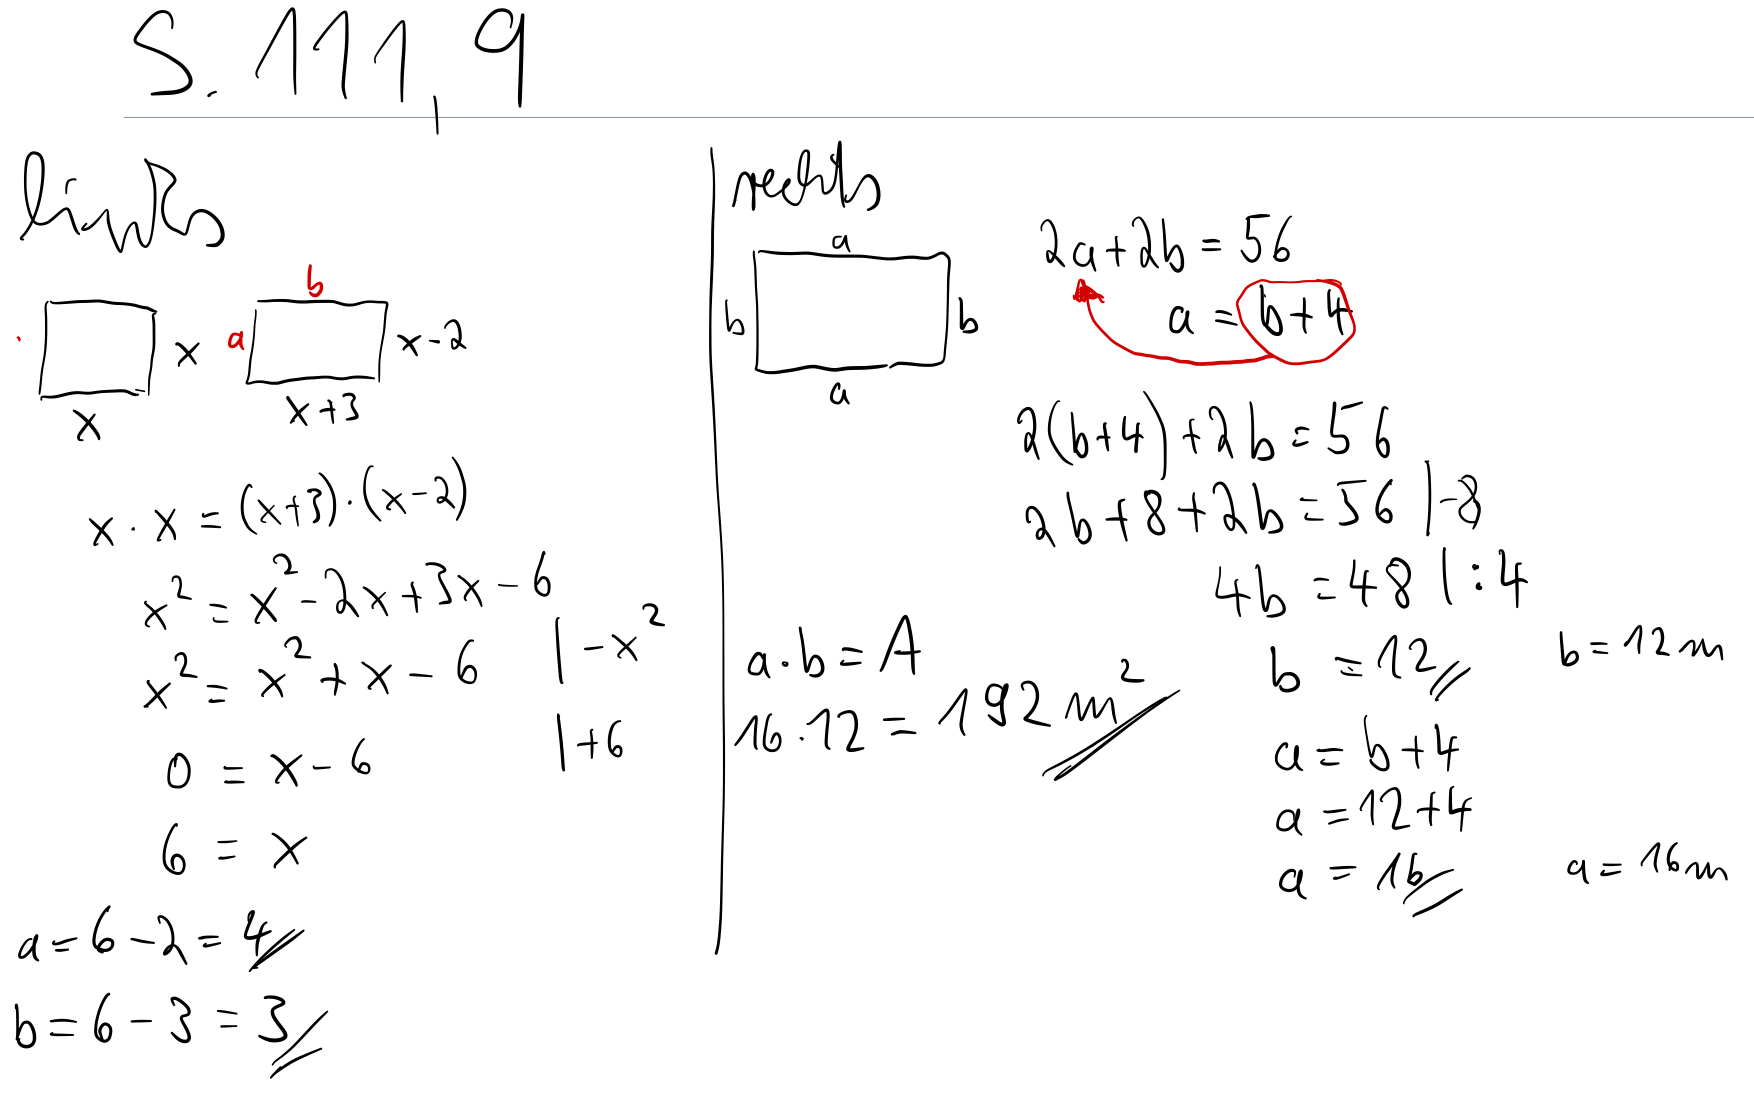 S. 111, 9
links
b
a
x
x-2
x
x+3
x · x = (x+3) · (x-2)
x² = x² - 2x + 3x - 6
x² = x² + x - 6 | -x²
0 = x - 6 | +6
6 = x
a = 6 - 2 = 4
b = 6 - 3 = 3
rechts
a
b
b
a
2a + 2b = 56
a = b+4
2(b+4) + 2b = 56
2b + 8 + 2b = 56 | -8
4b = 48 | : 4
b = 12
b = 12 m
a = b+4
a = 12+4
a = 16
a = 16 m
a · b = A
16 · 12 = 192 m²